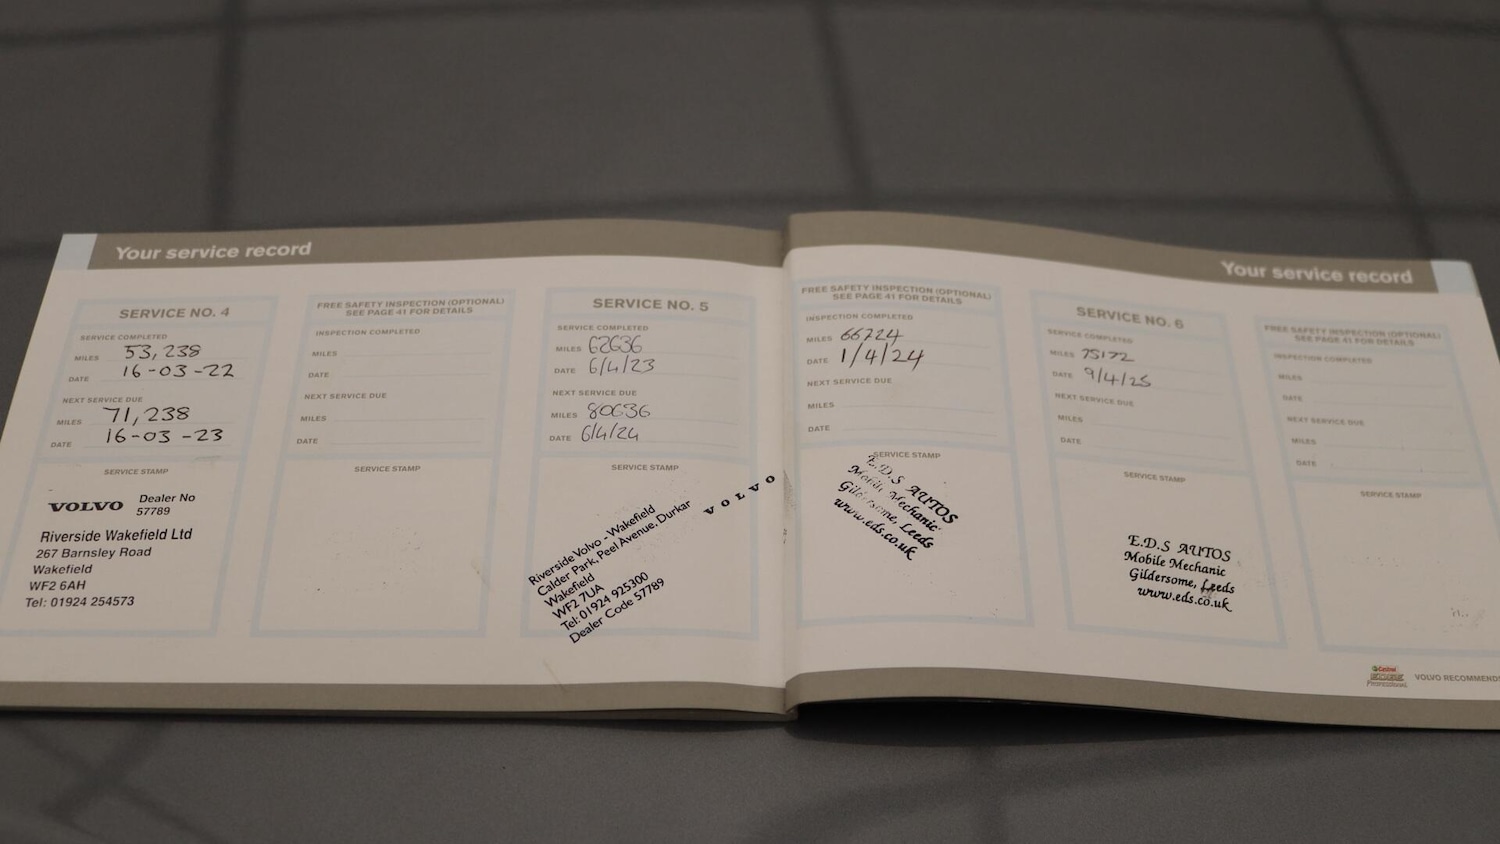 Your service record
SERVICE NO. 4
SERVICE COMPLETED
MILES 53,238
DATE 16-03-22
NEXT SERVICE DUE
MILES 71,238
DATE 16-03-23
SERVICE STAMP
VOLVO Dealer No
57789
Riverside Wakefield Ltd
267 Barnsley Road
Wakefield
WF2 6AH
Tel: 01924 254573
FREE SAFETY INSPECTION (OPTIONAL)
SEE PAGE 41 FOR DETAILS
INSPECTION COMPLETED
MILES
DATE
NEXT SERVICE DUE
MILES
DATE
SERVICE STAMP
SERVICE NO. 5
SERVICE COMPLETED
MILES 62636
DATE 6/4/23
NEXT SERVICE DUE
MILES 80636
DATE 6/4/24
SERVICE STAMP
VOLVO
Riverside Volvo - Wakefield
Calder Park, Peel Avenue, Durkar
Wakefield
WF2 7UA
Tel: 01924 925300
Dealer Code 57789
Your service record
FREE SAFETY INSPECTION (OPTIONAL)
SEE PAGE 41 FOR DETAILS
INSPECTION COMPLETED
MILES 66724
DATE 1/4/24
NEXT SERVICE DUE
MILES
DATE
SERVICE STAMP
E.D.S AUTOS
Mobile Mechanic
Gildersome, Leeds
www.eds.co.uk
SERVICE NO. 6
SERVICE COMPLETED
MILES 75172
DATE 9/4/25
NEXT SERVICE DUE
MILES
DATE
SERVICE STAMP
E.D.S AUTOS
Mobile Mechanic
Gildersome, Leeds
www.eds.co.uk
FREE SAFETY INSPECTION (OPTIONAL)
SEE PAGE 41 FOR DETAILS
INSPECTION COMPLETED
MILES
DATE
NEXT SERVICE DUE
MILES
DATE
SERVICE STAMP
Castrol
EDGE
Professional
VOLVO RECOMMENDS